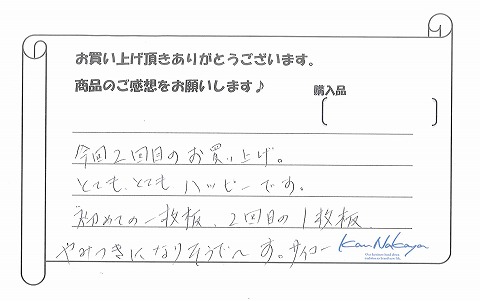 お買い上げ頂きありがとうございます。
商品のご感想をお願いします♪
購入品
今回2回目のお買い上げ。
とても、とても ハッピーです。
初めての一枚板、2回目の1枚板、
やみつきになりそうで〜す。サイコー
Kan Nakaya